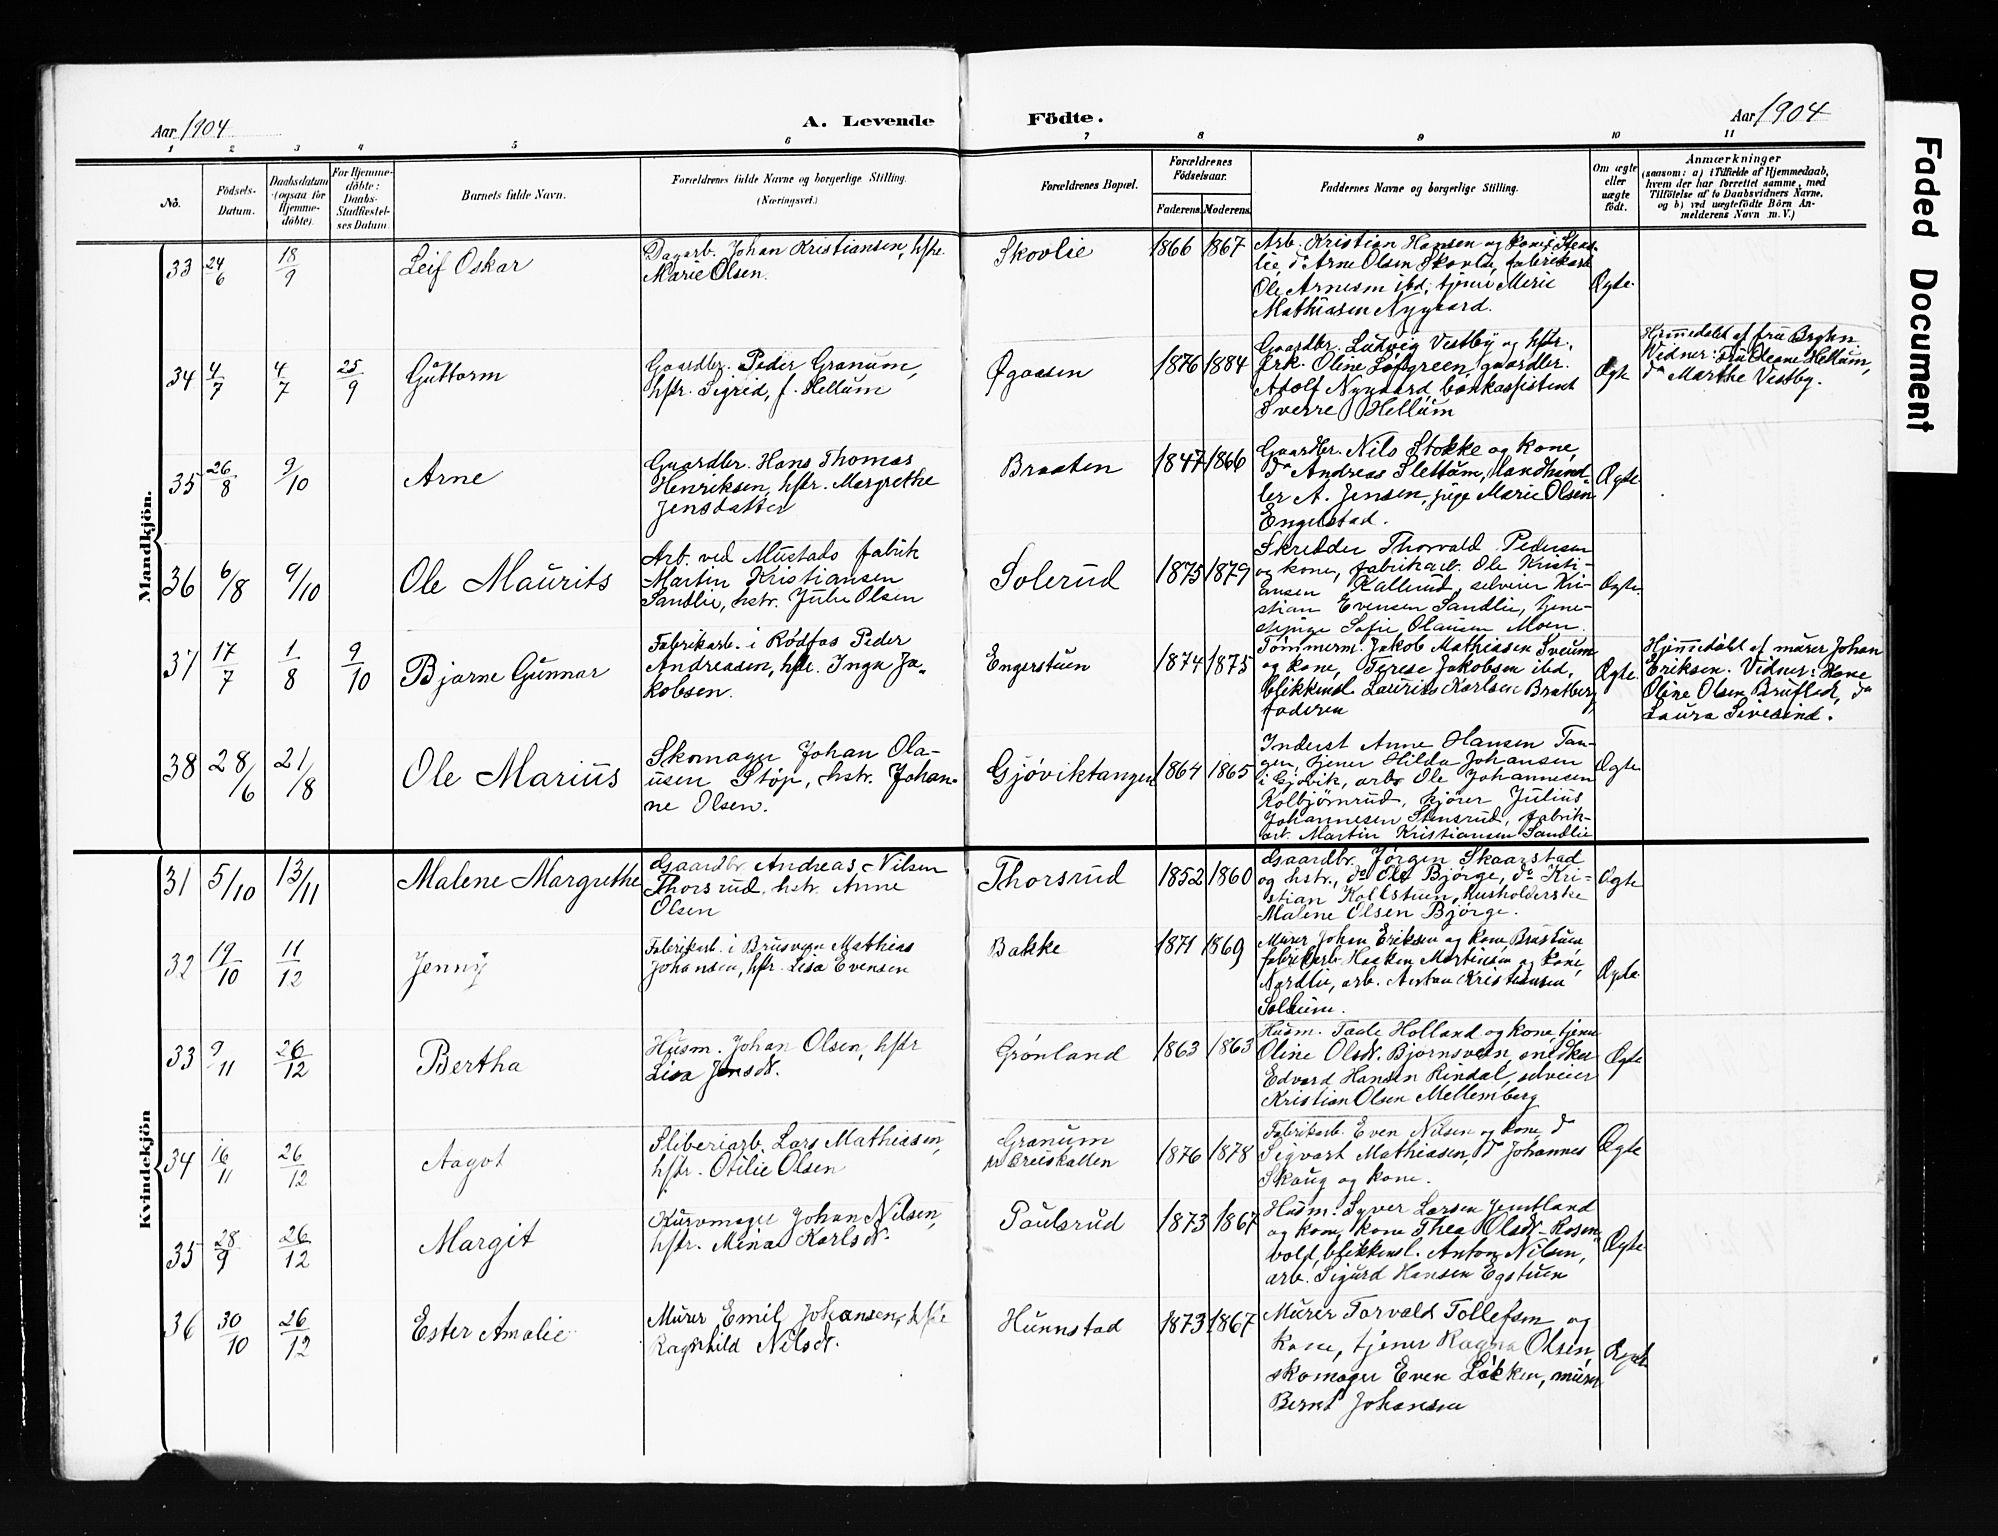 Aar 1904
A. Levende
Födte.
Aar 1904
1 2 3 4 5 6 7 8 9 10 11
No.
Födsels-
Datum.
Daabsdatum
(ogsaa for
Hjemme-
döbte).
For Hjemme-
döbte:
Daabs-
Stadfæstel-
ses Datum.
Barnets fulde Navn.
Forældrenes fulde Navne og borgerlige Stilling.
(Næringsvei.)
Forældrenes Bopæl.
Forældrenes
Födselsaar.
Faderens.
Moderens.
Faddernes Navne og borgerlige Stilling.
Om ægte
eller
uægte
födt.
Anmærkninger
(saasom: a) i Tilfælde af Hjemmedaab,
hvem der har forrettet samme, med
Tilföielse af to Daabsvidners Navne,
og b) ved uægtefödte Börn An-
melderens Navn m. V.)
Mandkjön.
33 24/6 18/9
Leif Oskar
Dagarb. Johan Kristiansen, hstr.
Marie Olsen.
Skovlie
1866 1867
Arb. Kristian Hansen og kone,
lie, do Arne Olsen Skovlie, fabrikarb.
Ole Arnesen ibd,
Mathiasen Nygaard.
Ægte.
34 4/7 4/7 25/9
Guttorm
Gaardbr. Peder Granum,
hstr. Sigrid, f. Hellum
Øgaasen
1876 1884
Gaardbr. Ludvig Vestby og hstr.,
frk. Oline Løfgreen, gaardbr.
Adolf Nygaard, bankassistent
Sverre Hellum
Ægte
Hjemmedøbt af fru
Vidner: Fru Oleane Hellum,
do Marthe Vestby.
35 26/8 9/10
Arne
Gaardbr. Hans Thomas
Henriksen, hstr. Margrethe
Jensdatter
Braaten
1847 1866
Gaardbr. Nils Stokke og kone,
do Andreas Slettum, landhand-
ler A. Jensen, pige Marie Olsen
Engelstad.
Ægte
36 6/8 9/10
Ole Maurits
Arb. ved Mustads fabrik
Martin Kristiansen
Sandlie, hstr. Julie Olsen
Solerud
1875 1879
Skredder Thorvald Pedersen
og kone, fabrikarb. Ole Kristi-
ansen Kallerud, selveier Kri-
stian Evensen Sandlie, tjene-
stepige Sofie Olausen Moen.
Ægte
37 17/7 1/8 9/10
Bjarne Gunnar
Fabrikarb. i Rødfos Peder
Andreasen, hstr. Inga Ja-
kobsen.
Engerstuen
1874 1875
Tømmerm. Jakob Mathiasen Sveum
og kone, Terese Jakobsen ibd,
blikkensl. Laurits Karlsen Bratberg,
faderen
Ægte.
Hjemmedøbt af murer Johan
Eriksen. Vidner: Kone
Oline Olsen Bruflat, do
Laura Sivesind.
38 28/6 21/8
Ole Marius
Skomager Johan Ola-
usen Støp, hstr. Johan-
ne Olsen.
Gjøviktangen
1864 1865
Inderst Anne Hansen Tan-
gen, tjener Hilda Johansen
i Gjøvik, arb. Ole Johannesen
Kolbjørnrud, kjører Julius
Johannesen Stensrud, fabrik-
arb. Martin Kristiansen Sandlie
Ægte
Kvindekjön
31 5/10 13/11
Malene Margrethe
Gaardbr. Andreas Nilsen
Thorsrud, hstr. Anne
Olsen
Thorsrud
1852 1860
Gaardbr. Jørgen Skaarstad
og hstr., do Ole Bjørge, do Kri-
stian Kolbstuen, husholderske
Malene Olsen Bjørge.
Ægte
32 19/10 11/12
Jenny
Fabrikarb. i Brusveen Mathias
Johansen, hstr. Lisa Evensen
Bakke
1871 1869
Murer Johan Eriksen og kone
fabrikarb. Haaken Martinsen og kone,
Nordlie, arb. Anton Kristiansen
Solheim.
Ægte
33 9/11 26/12
Bertha
Husm. Johan Olsen, hstr
Lisa Jensdt.
Grønland
1863 1863
Husm. Holland og kone, tjener
Oline Olsdt. Bjørnsveen, snedker
Edvard Hansen Rindal, selveier
Kristian Olsen Mellemberg
Ægte
34 16/11 26/12
Aagot
Sliberiarb. Lars Mathiasen,
hstr. Otilie Olsen
Granum
1876 1878
Fabrikarb. Even Nilsen og kone do
Sigvart Mathiasen, do Johannes
Skaug og kone.
Ægte
35 28/9 26/12
Margit
Kurvmager Johan Nilsen,
hstr. Mina Karlsdt.
Paulsrud
1873 1867
Husm. Syver Larsen Jemtland
og kone, kone Thea Olsdt. Rosen-
vold, blikkensl. Anton Nilsen,
arb. Sigurd Hansen Egstuen
Ægte
36 30/10 26/12
Ester Amalie
Murer Emil Johansen, hstr
Ragnhild Nilsdt.
Hunnstad
1873 1867
Murer Torvald Tollefsen og
kone, tjener Ragna Olsen,
skomager Even Løkken, murer
Bernt Johansen
Ægte
Faded Document